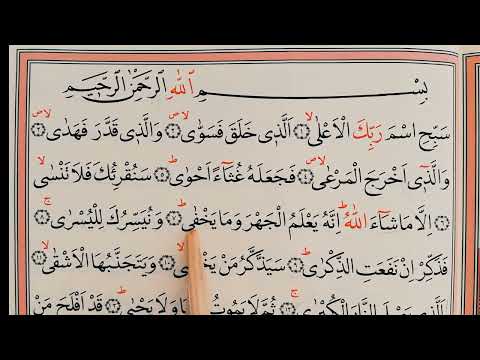 بِسْمِ اللّٰهِ الرَّحْمٰنِ الرَّحٖيمِ
سَبِّحِ اسْمَ رَبِّكَ الْاَعْلٰىۙ ﴿١﴾ اَلَّذٖى خَلَقَ فَسَوّٰىۙ ﴿٢﴾ وَالَّذٖى قَدَّرَ فَهَدٰىۙ ﴿٣﴾
وَالَّذٖٓى اَخْرَجَ الْمَرْعٰىۙ ﴿٤﴾ فَجَعَلَهُ غُثَٓاءً اَحْوٰىؕ ﴿٥﴾ سَنُقْرِئُكَ فَلَا تَنْسٰىۙ
﴿٦﴾ اِلَّا مَا شَٓاءَ اللّٰهُؕ اِنَّهُ يَعْلَمُ الْجَهْرَ وَمَا يَخْفٰىؕ ﴿٧﴾ وَنُيَسِّرُكَ لِلْيُسْرٰىۚ ﴿٨﴾
فَذَكِّرْ اِنْ نَفَعَتِ الذِّكْرٰىؕ ﴿٩﴾ سَيَذَّكَّرُ مَنْ ﴿١٠﴾ وَيَتَجَنَّبُهَا الْاَشْقٰىۙ ﴿١١﴾
اَلَّذٖى يَصْلَى النَّارَ الْكُبْرٰىۚ ﴿١٢﴾ ثُمَّ لَا يَمُوتُ وَلَا يَحْيٰىؕ ﴿١٣﴾ قَدْ اَفْلَحَ مَنْ